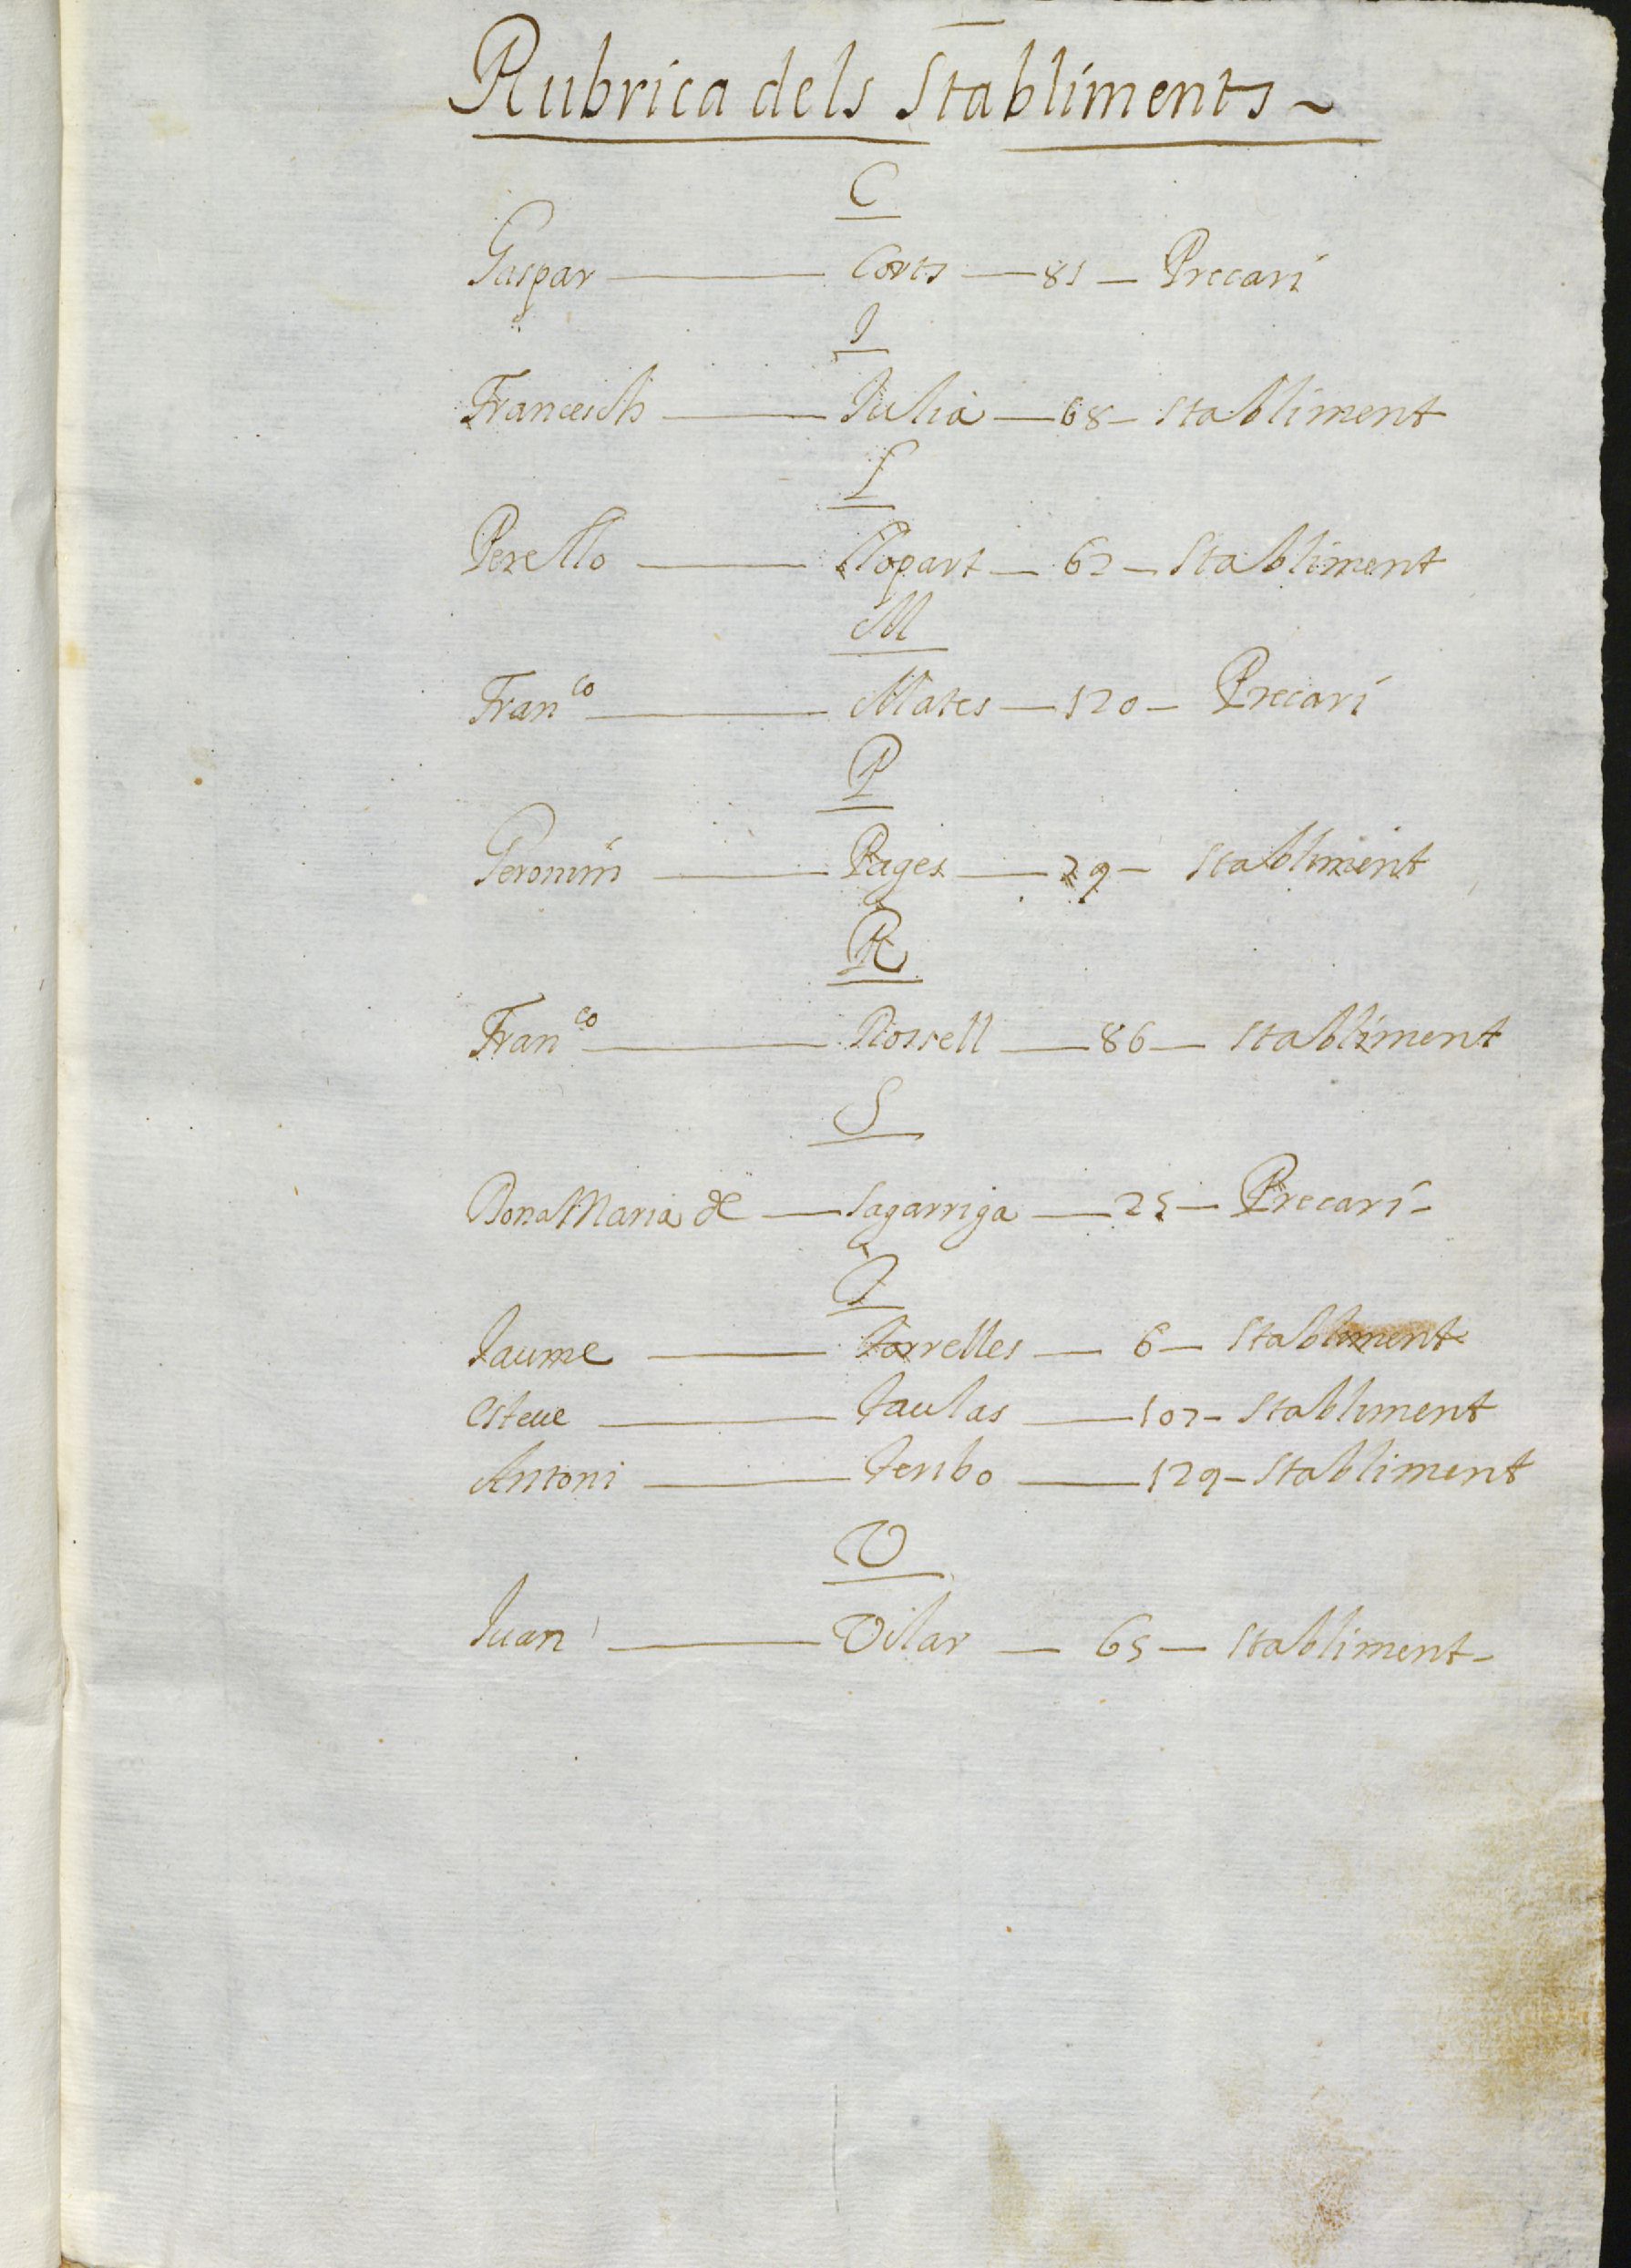 Rubrica dels Stabliments ~
C
Gaspar — Corts — 81 — Precari
I
Francesch — Iulia — 68 — Stabliment
L
Perello — Llopart — 62 — Stabliment
M
Fran^co — Mates — 120 — Precari
P
Geronim — Pages — 29 — Stabliment
R
Fran^co — Rossell — 86 — Stabliment
S
Dona Maria de — Sagarriga — 25 — Precari —
T
Jaume — Torrelles — 6 — Stabliment
Esteue — Taulas — 107 — Stabliment
Antoni — 129 — Stabliment
V
Juan — Vilar — 65 — Stabliment —